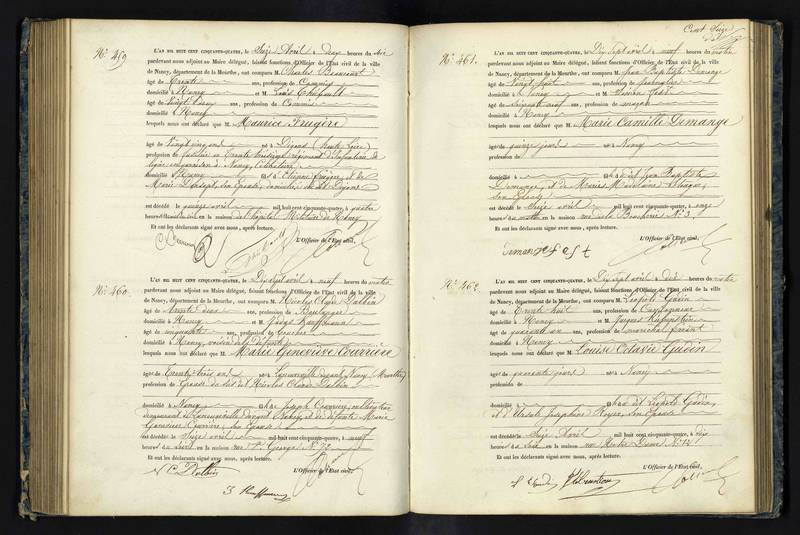 N°. 459
L'AN MIL HUIT CENT CINQUANTE-QUATRE, le Seize Avril à deux heures du soir
pardevant nous adjoint au Maire délégué, faisant fonctions d'Officier de l'État civil de la ville
de Nancy, département de la Meurthe, ont comparu M. Charles
âgé de Trente ans, profession de Commis
domicilié à Nancy et M. Louis
âgé de Vingt ans, profession de Commis
domicilié à Nancy
lesquels nous ont déclaré que M. Maurice Frugère
âgé de Vingt cinq ans né à (Haute Loire)
profession de fusilier au Trente régiment d'Infanterie de
ligne en garnison à Nancy, Célibataire
domicilié à Nancy fils d'Etienne Frugère, et de
Marie son épouse, domiciliés
est décédé le quinze avril mil huit cent cinquante-quatre, à quatre
heures du en la maison de l'hôpital Militaire de Nancy
Et ont les déclarants signé avec nous, après lecture.
L'Officier de l'État civil,
N°. 460
L'AN MIL HUIT CENT CINQUANTE-QUATRE, le Dix sept avril à neuf heures du matin
pardevant nous adjoint au Maire délégué, faisant fonctions d'Officier de l'État civil de la ville
de Nancy, département de la Meurthe, ont comparu M. Nicolas Claude Dalbin
âgé de Trente deux ans, profession de Boulanger
domicilié à Nancy et M. Kauffmann
âgé de cinquante ans, profession de
domicilié à Nancy, voisin de la défunte
lesquels nous ont déclaré que M. Marie Geneviève Courrière
âgée de Trente trois ans née à Nancy (Meurthe)
profession de Epouse du dit Nicolas Claude Dalbin
domicilié à Nancy fille de Joseph Courrière
demeurant à Nancy, et de défunte Marie
Courrière, son Epouse
est décédée le Seize avril mil huit cent cinquante-quatre, à neuf
heures du soir en la maison rue St. George N°
Et ont les déclarants signé avec nous, après lecture.
L'Officier de l'État civil,
N C Dalbin
J Kauffmann
Cent Seize
N°. 461.
L'AN MIL HUIT CENT CINQUANTE-QUATRE, le Dix sept avril à neuf heures du matin
pardevant nous adjoint au Maire délégué, faisant fonctions d'Officier de l'État civil de la ville
de Nancy, département de la Meurthe, ont comparu M. Jean Baptiste Demange
âgé de Vingt sept ans, profession de
domicilié à Nancy et M.
âgé de Soixante neuf ans, profession de maçon
domicilié à Nancy
lesquels nous ont déclaré que M. Marie Camille Demange
âgée de quinze jours née à Nancy
profession de
domicilié à fille de Jean Baptiste
Demange, et de Marie Madeleine
son Epouse
est décédée le Seize avril mil huit cent cinquante-quatre, à onze
heures du matin en la maison rue de la Boucherie N° 3
Et ont les déclarants signé avec nous, après lecture.
L'Officier de l'État civil,
Demange
N°. 462
L'AN MIL HUIT CENT CINQUANTE-QUATRE, le Dix sept avril à dix heures du matin
pardevant nous adjoint au Maire délégué, faisant fonctions d'Officier de l'État civil de la ville
de Nancy, département de la Meurthe, ont comparu M. Léopold Gudin
âgé de Trente huit ans, profession de
domicilié à Nancy et M.
âgé de quarante ans, profession de maréchal ferrant
domicilié à Nancy
lesquels nous ont déclaré que M. Louise Octavie Gudin
âgée de quarante jours née à Nancy
profession de
domicilié à fille de Léopold Gudin,
et d'Ursule Joséphine Royer, son Epouse
est décédée le Seize Avril mil huit cent cinquante-quatre, à dix
heures du soir en la maison rue Notre Dame N°
Et ont les déclarants signé avec nous, après lecture.
L'Officier de l'État civil,